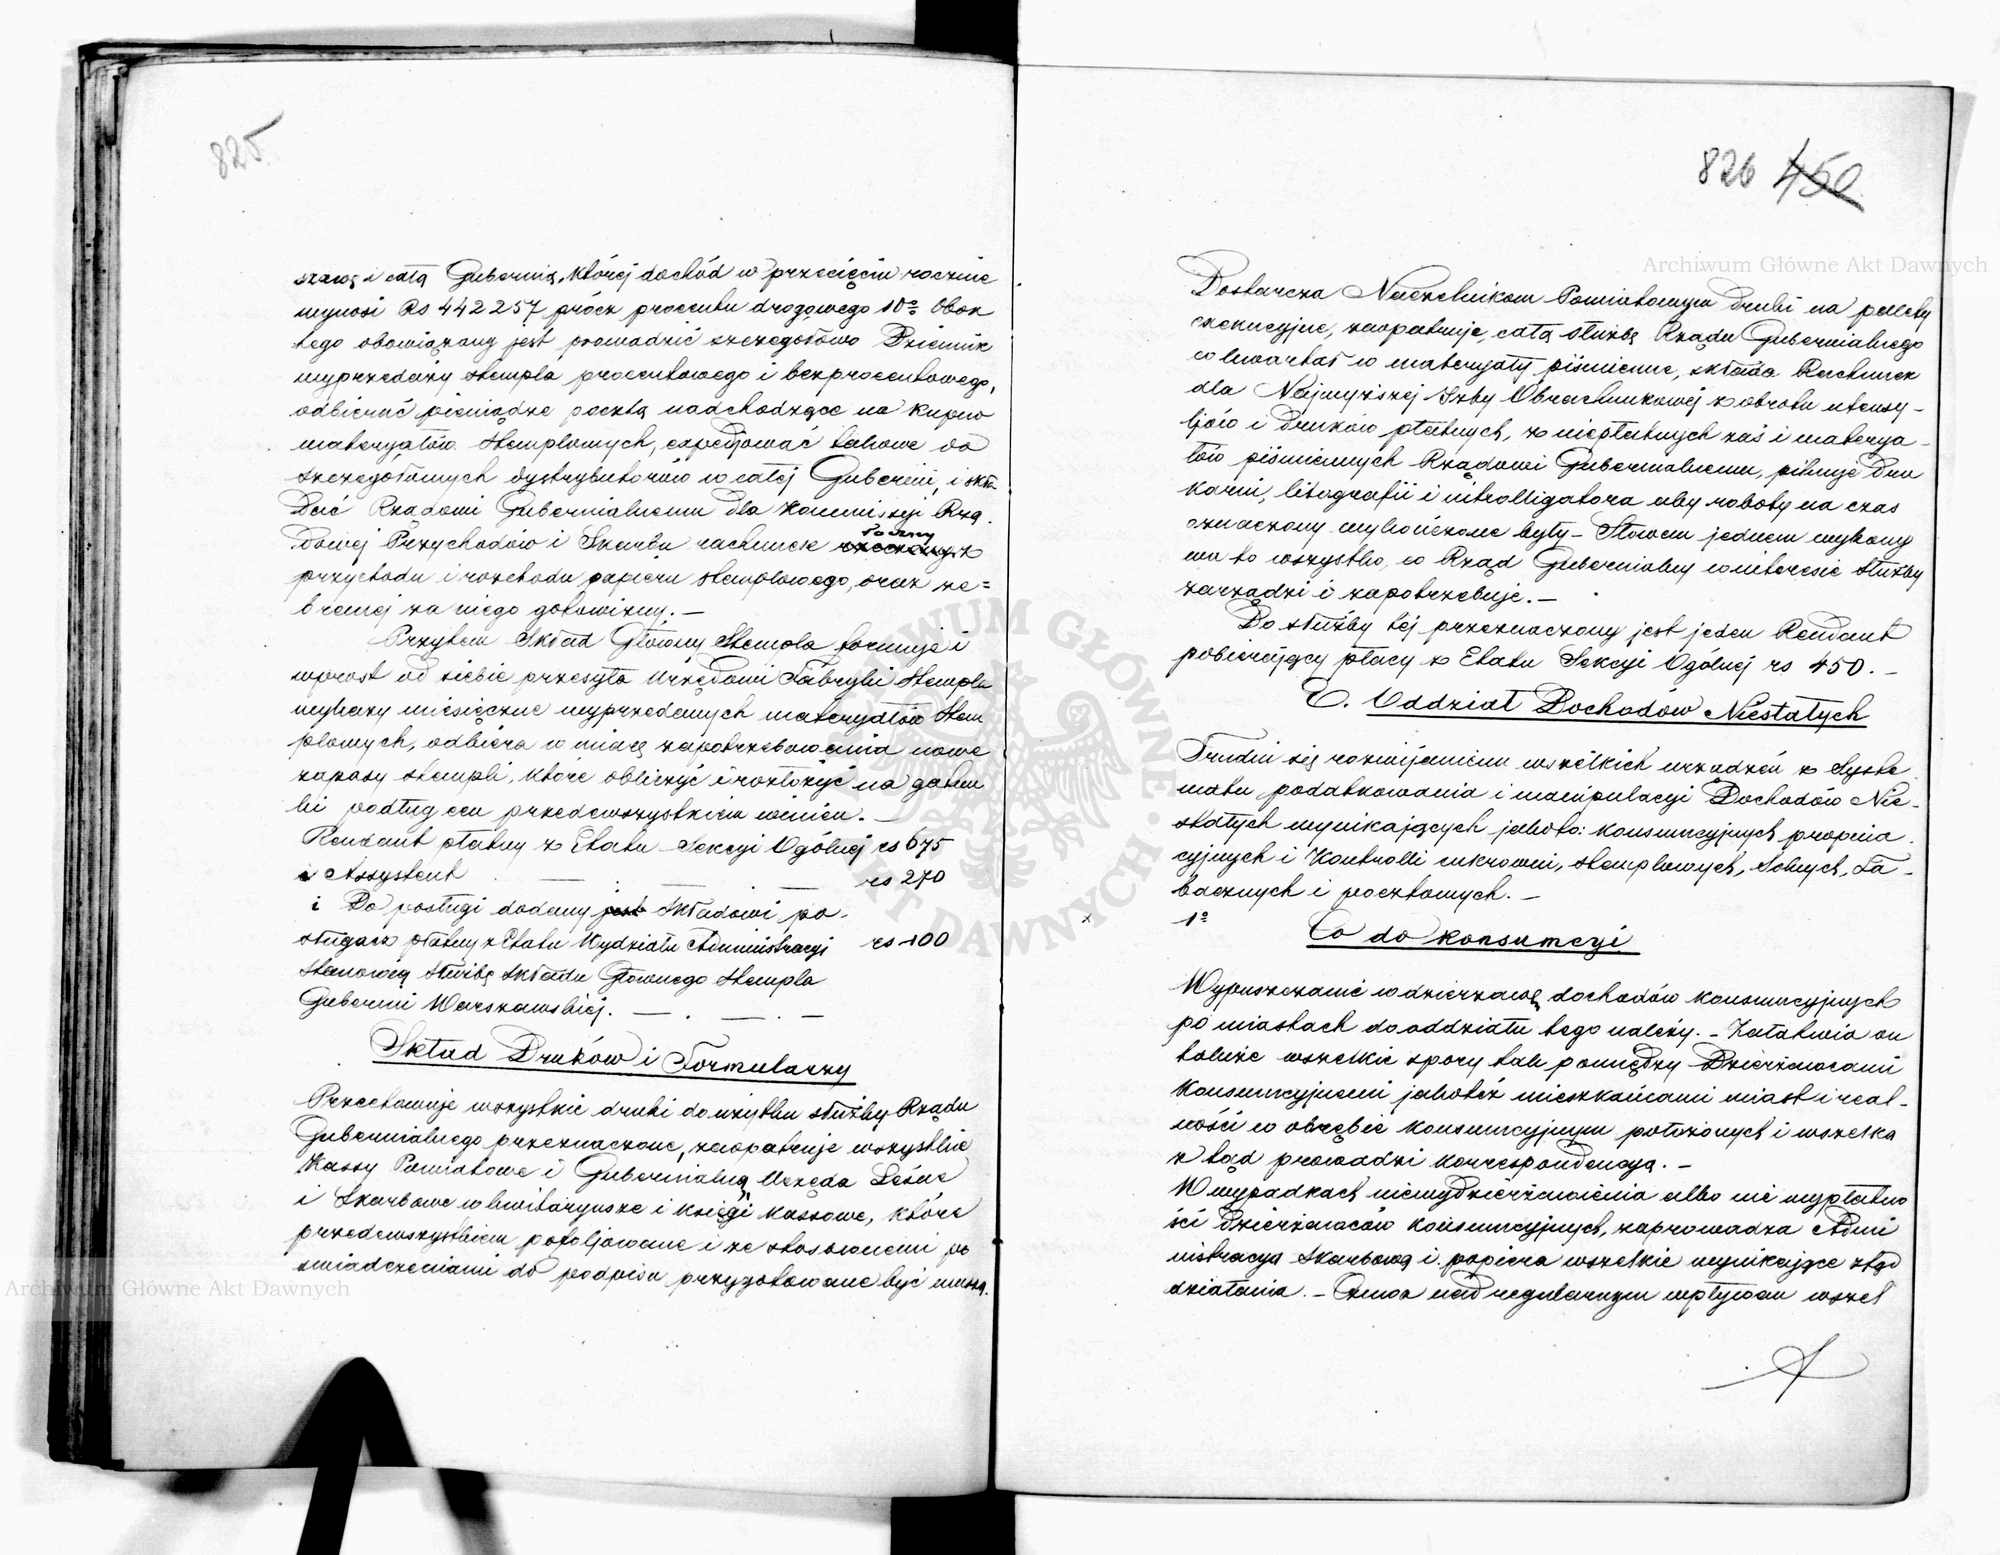 825
szawę i całą Gubernią, której dochód w przecięciu rocznie
wynosi Rs 442257 prócz procentu drogowego 10º Obok
tego obowiązany jest prowadzić szczegółowo Dziennik
wyprzedaży stempla procentowego i bezprocentowego,
odbierać pieniądze pocztą nadchodzące na kupno
materyałów stemplowych, expedjować takowe do
szczegółowych dystrybutorów w całej Gubernii, i skła-
dać Rządowi Gubernialnemu dla Kommissyi Rzą-
dowej Przychodów i Skarbu rachunek roczny z
przychodu i rozchodu papieru stemplowego, oraz ze=
branej za niego gotowizny. —
Przytem Skład Główny Stempla formuje i
wprost od siebie przesyła Urzędowi Fabryki Stempla
wykazy miesięczne wyprzedanych materyałów stem
plowych, odbiera w miarę zapotrzebowania nowe
zapasy stempli, które obliczyć i rozłożyć na gatun
ki podług cen przedewszystkiem winien. —
Rendant płatny z Etatu Sekcyi Ogólnej rs 675
i Assystent — . — — rs 270
i Do posługi dodany jest Składowi po-
sługacz płatny z Etatu Wydziału Administracyi rs 100
Stanowią służbę Składu Głównego Stempla
Gubernii Warszawskiej. — . — . —
Skład Druków i Formularzy
Przechowuje wszystkie druki do użytku służby Rządu
Gubernialnego przeznaczone, zaopatruje wszystkie
Kassy Powiatowe i Gubernialną, Urzęda Leśne
i Skarbowe w kwitaryusze i księgi kassowe, które
przedewszystkiem pofoljowane i ze stosownemi po
świadczeniami do podpisu przygotowane być muszą.
826 450
Dostarcza Naczelnikom Powiatowym druki na palety
exekucyjne, zaopatruje całą służbę Rządu Gubernialnego
co kwartał w materyały piśmienne, składa Rachunek
dla Najwyższej Izby Obrachunkowej z obrotu utensy-
ljów i druków płatnych, z niepłatnych zaś i materya-
łów piśmiennych Rządowi Gubernialnemu, pilnuje dru
karni, litografii i introlligatora aby roboty na czas
oznaczony wykończone były — Słowem jednem wykony
wa to wszystko, co Rząd Gubernialny w interesie służby
zarządzi i zapotrzebuje. —
Do służby tej przeznaczony jest jeden Rendant
pobierający płacy z Etatu Sekcyi Ogólnej rs 450. —
C. Oddział Dochodów Niestałych
Trudni się rozwijaniem wszelkich urządzeń z Syste
matu podatkowania i manipulacyi Dochodów Nie-
stałych wynikających jakoto: konsumcyjnych propina
cyjnych i Kontrolli cukrowni, stemplowych, Solnych, Ta-
bacznych i pocztowych. —
x 1º
Co do konsumcyi
Wypuszczanie w dzierżawę dochodów konsumcyjnych
po miastach do oddziału tego należy. — Załatwia on
także wszelkie spory tak pomiędzy Dzierżawcami
Konsumcyjnemi jakoteż mieszkańcami miast i real-
ności w obrębie konsumcyjnym położonych i wszelką
z tąd prowadzi korrespondencyą. —
W wypadkach niewydzierżawienia albo nie wypłatno
ści dzierżawców konsumcyjnych, zaprowadza Admi
nistracyą Skarbową i popiera wszelkie wynikające ztąd
działania. — Czuwa nad regularnym wpływem wszel
Archiwum Główne Akt Dawnych
Archiwum Główne Akt Dawnych
ARCHIWUM GŁÓWNE AKT DAWNYCH